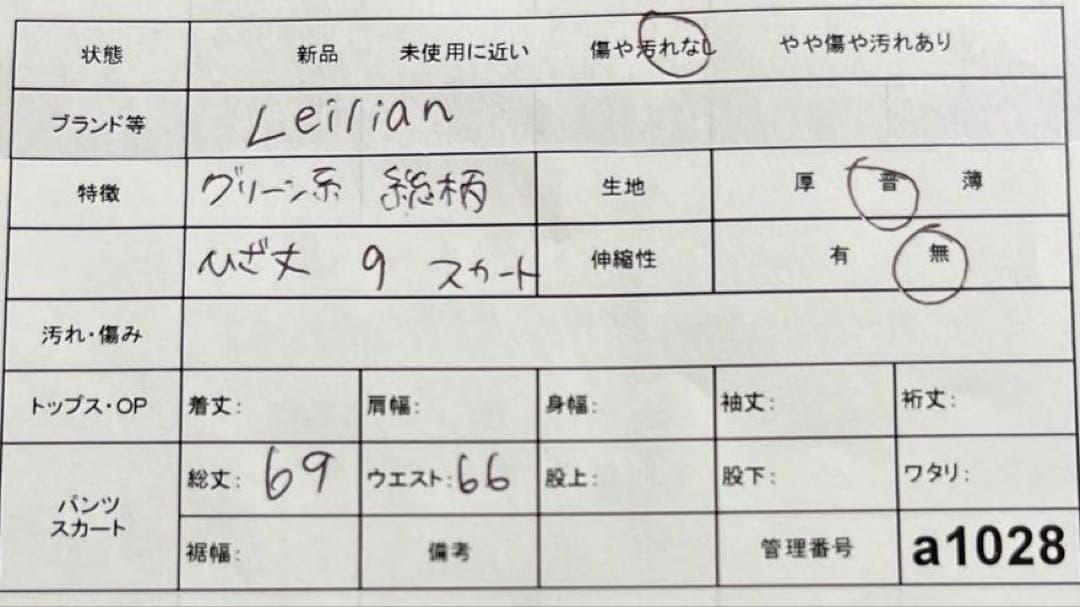 状態 新品 未使用に近い 傷や汚れなし やや傷や汚れあり
ブランド等 Leilian
特徴 グリーン系 総柄 生地 厚 普 薄
ひざ丈 9 スカート 伸縮性 有 無
汚れ・傷み
トップス・OP 着丈: 肩幅: 身幅: 袖丈: 裄丈:
パンツ スカート 総丈: 69 ウエスト: 66 股上: 股下: ワタリ:
裾幅: 備考 管理番号 a1028